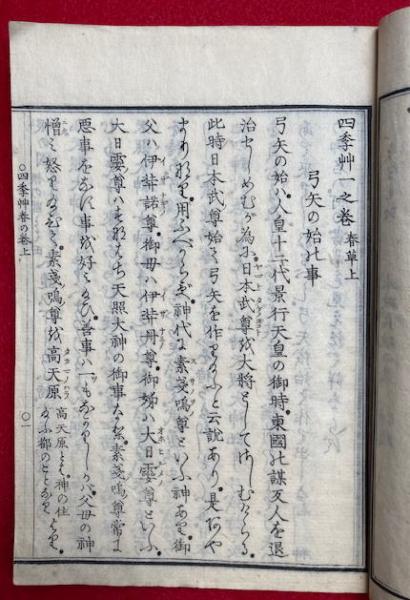 四季艸一之巻 春草上
弓矢の始の事
弓矢の始ハ人皇十二代景行天皇の御時東國の謀反人を退
治せしめむが為に日本武尊を大將としてさしむけらる
此時日本武尊始て弓矢を作り給ふと云説あり是あや
まり也用ふべからず神代に素戔嗚尊といふ神あり御
父ハ伊弉諾尊御母ハ伊弉冉尊御姉ハ大日孁尊といふ
大日孁尊ハすなはち天照大神の御事なり素戔嗚尊常に
悪事をなす事を好み給ひ善事ハ一もなかりしかバ父母の神
憎ミ怒り給ひ素戔嗚尊を高天原
高天原とハ神の住
給ふ都のことなり
○四季艸春の巻上
○一